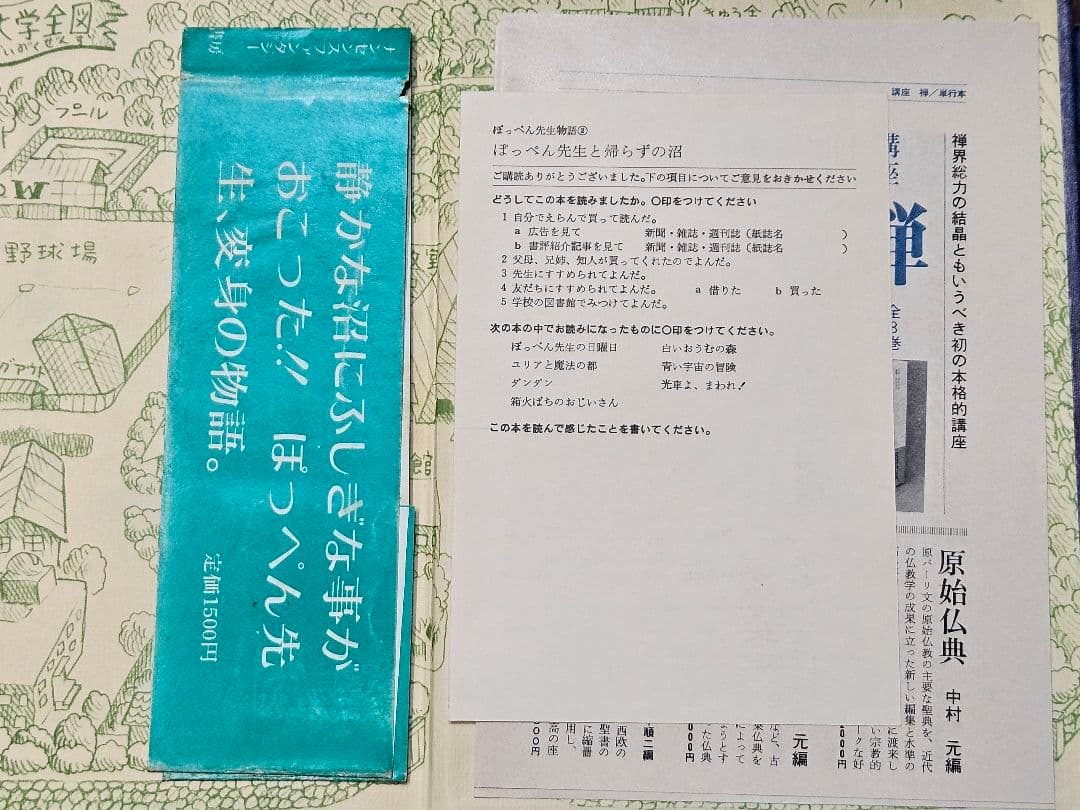 大学全図
プール
野球場
グアウト
館
ナンセンスファンタジー
静かな沼にふしぎな事が
おこった!! ぽっぺん先
生、変身の物語。
定価1500円
ぽっぺん先生物語②
ぽっぺん先生と帰らずの沼
ご購読ありがとうございました。下の項目についてご意見をおきかせください
どうしてこの本を読みましたか。〇印をつけてください
1 自分でえらんで買って読んだ。
a 広告を見て 新聞・雑誌・週刊誌（紙誌名 ）
b 書評紹介記事を見て 新聞・雑誌・週刊誌（紙誌名 ）
2 父母、兄姉、知人が買ってくれたのでよんだ。
3 先生にすすめられてよんだ。
4 友だちにすすめられてよんだ。 a 借りた b 買った
5 学校の図書館でみつけてよんだ。
次の本の中でお読みになったものに〇印をつけてください。
ぽっぺん先生の日曜日 白いおうむの森
ユリアと魔法の都 青い宇宙の冒険
ダンダン 光車よ、まわれ！
箱火ばちのおじいさん
この本を読んで感じたことを書いてください。
講座 禅／単行本
禅界総力の結晶ともいうべき初の本格的講座
講座
禅
全8巻
原始仏典 中村 元編
原パーリ文の原始仏教の主要な聖典を、近代
の仏教学の成果に立った新しい編集と水準の
に渡来し
い宗教的
ータな好
000円
元編
など、古
集仏典を
によって
りとす
た仏典
000円
順二編
西欧の
聖書の
に縮冊
用し、
高の座
00円